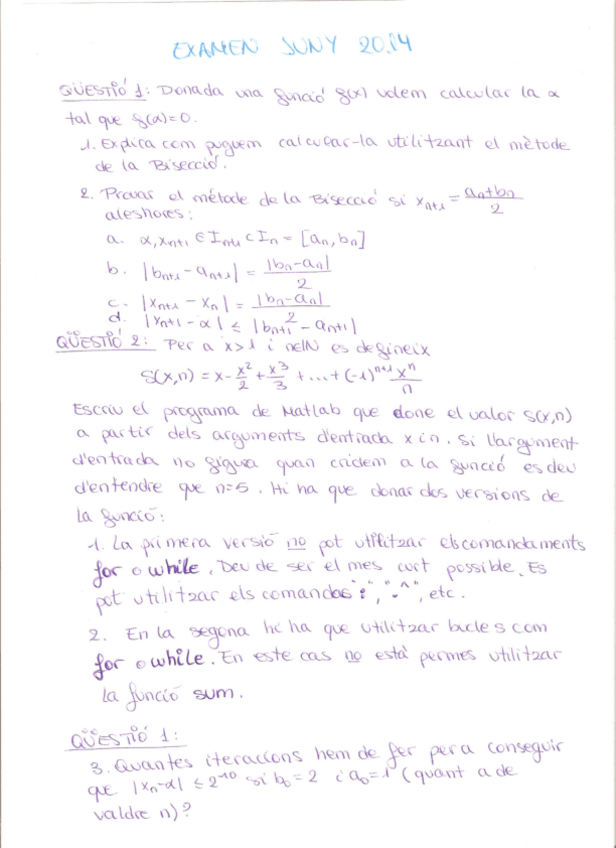 EXAMEN JUNY 2014
QÜESTIÓ 1: Donada una funció f(x) volem calcular la α
tal que f(α)=0.
1. Explica com puguem calcular-la utilitzant el mètode
de la Bisecció.
2. Provar el métode de la Bisecció si xₙ₊₁ = (aₙ+bₙ)/2
aleshores:
a. α, xₙ₊₁ ∈ Iₙ₊₁ ⊂ Iₙ = [aₙ, bₙ]
b. |bₙ₊₁ - aₙ₊₁| = |bₙ-aₙ|/2
c. |xₙ₊₁ - xₙ| = |bₙ-aₙ|/2
d. |xₙ₊₁ - α| ≤ |bₙ₊₁ - aₙ₊₁|
QÜESTIÓ 2: Per a x>1 i n∈ℕ es defineix
S(x,n) = x - x²/2 + x³/3 + ... + (-1)ⁿ⁺¹ xⁿ/n
Escriu el programa de Matlab que done el valor S(x,n)
a partir dels arguments d'entrada x i n. Si l'argument
d'entrada no sigua quan cridem a la funció es deu
d'entendre que n=5. Hi ha que donar dos versions de
la funció:
1. La primera versió no pot utilitzar els comandaments
for o while. Deu de ser el mes curt possible. Es
pot utilitzar els comandos ":", ".^", etc.
2. En la segona hi ha que utilitzar bucles com
for o while. En este cas no està permes utilitzar
la funció sum.
QÜESTIÓ 1:
3. Quantes iteraccions hem de fer per a conseguir
que |xₙ-α| ≤ 2⁻¹⁰ si b₀=2 i a₀=1 (quant a de
valdre n)?